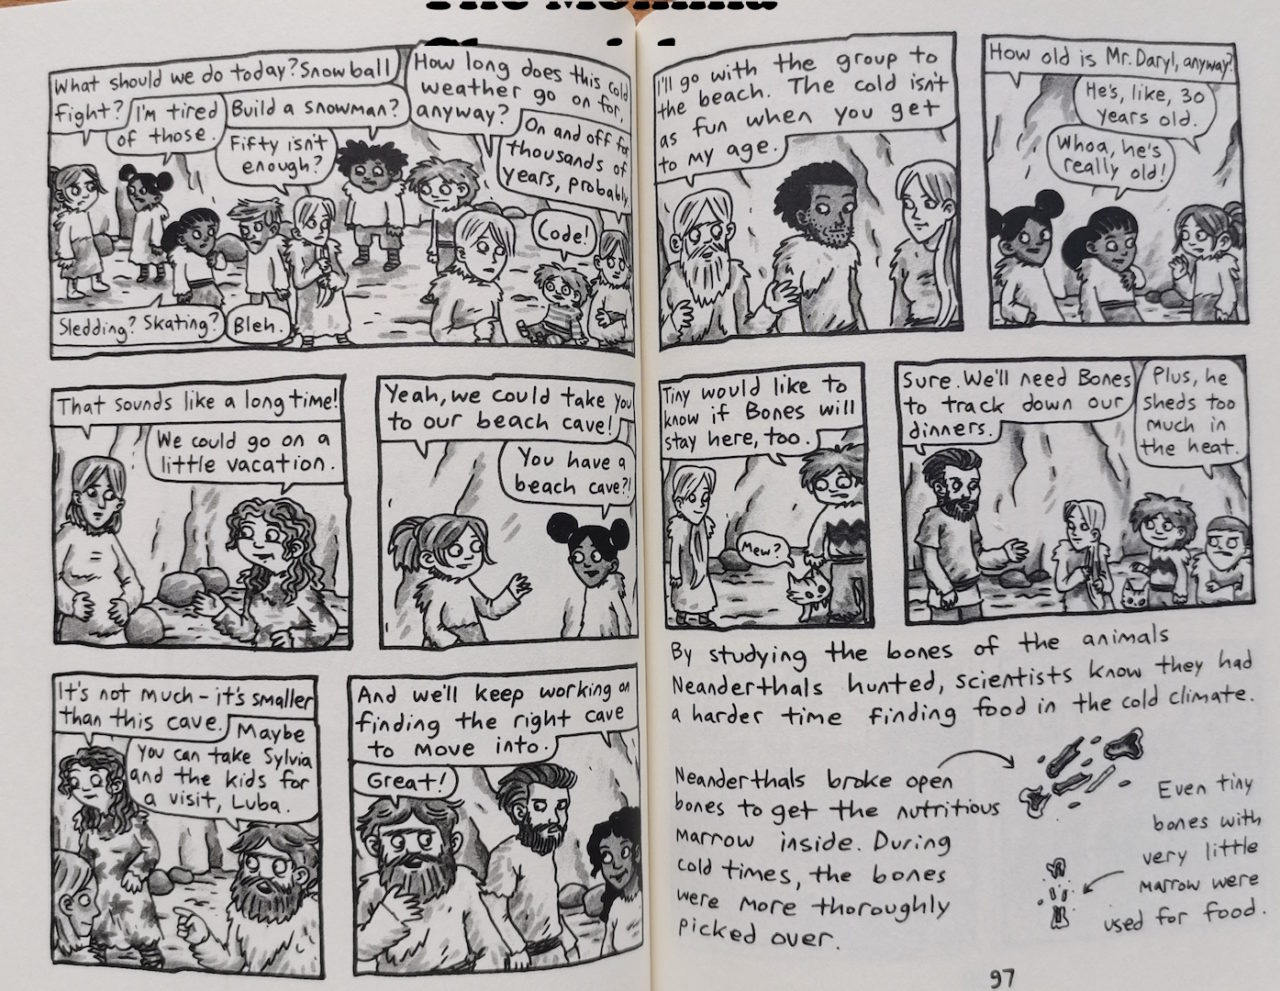 What should we do today? Snowball
fight?
I'm tired
of those.
Build a snowman?
Fifty isn't
enough?
How long does this cold
weather go on for,
anyway?
On and off for
thousands of
years, probably
Code!
Sledding? Skating?
Bleh.
That sounds like a long time!
We could go on a
little vacation.
Yeah, we could take you
to our beach cave!
You have a
beach cave?!
It's not much - it's smaller
than this cave.
Maybe
you can take Sylvia
and the kids for
a visit, Luba.
And we'll keep working on
finding the right cave
to move into.
Great!
I'll go with the group to
the beach. The cold isn't
as fun when you get
to my age.
How old is Mr. Daryl, anyway?
He's, like, 30
years old.
Whoa, he's
really old!
Tiny would like to
know if Bones will
stay here, too.
Mew?
Sure. We'll need Bones
to track down our
dinners.
Plus, he
sheds too
much in
the heat.
By studying the bones of the animals
Neanderthals hunted, scientists know they had
a harder time finding food in the cold climate.
Neanderthals broke open
bones to get the nutritious
marrow inside. During
cold times, the bones
were more thoroughly
picked over.
Even tiny
bones with
very little
marrow were
used for food.
97